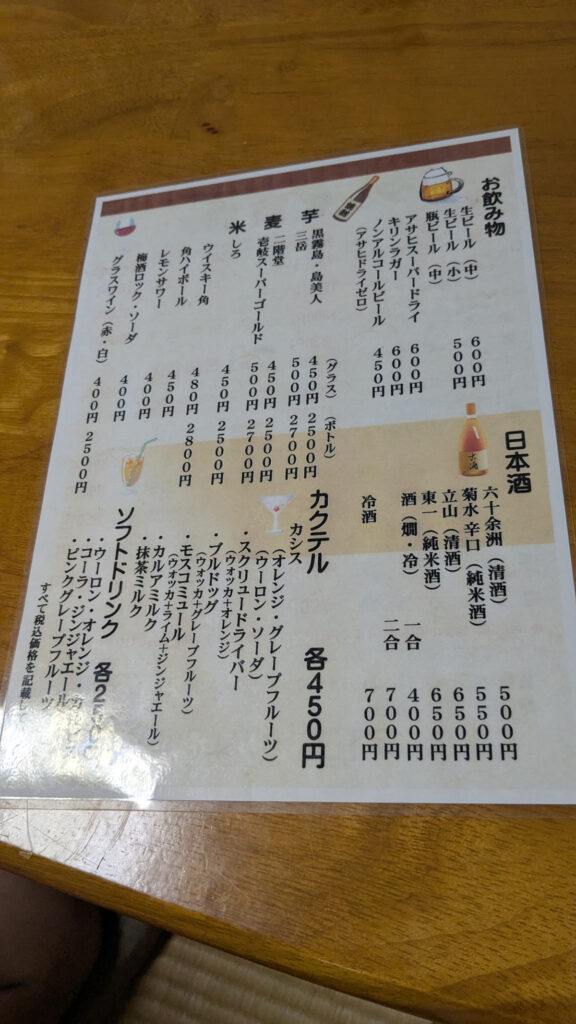 お飲み物
生ビール（中） 600円
生ビール（小） 500円
瓶ビール（中）
アサヒスーパードライ 600円
キリンラガー 600円
ノンアルコールビール 450円
（アサヒドライゼロ）
（グラス）（ボトル）
芋 黒霧島・島美人 450円 2500円
三岳 500円 2700円
麦 二階堂 450円 2500円
壱岐スーパーゴールド 500円 2700円
米 しろ 450円 2500円
ウイスキー角 480円 2800円
角ハイボール 450円
レモンサワー 400円
梅酒ロック・ソーダ 400円
グラスワイン（赤・白） 400円 2500円
日本酒
六十余洲（清酒） 500円
菊水 辛口（純米酒） 550円
立山（清酒） 650円
東一（純米酒） 650円
酒（燗・冷） 一合 400円
二合 700円
冷酒 700円
カクテル 各450円
カシス
（オレンジ・グレープフルーツ）
（ウーロン・ソーダ）
・スクリュードライバー
（ウォッカ+オレンジ）
・ブルドッグ
（ウォッカ+グレープフルーツ）
・モスコミュール
（ウォッカ+ライム+ジンジャエール）
・カルアミルク
・抹茶ミルク
ソフトドリンク 各2
・ウーロン・オレンジ・カルピス
・コーラ・ジンジャエール
・ピンクグレープフルーツ
すべて税込価格を記載して